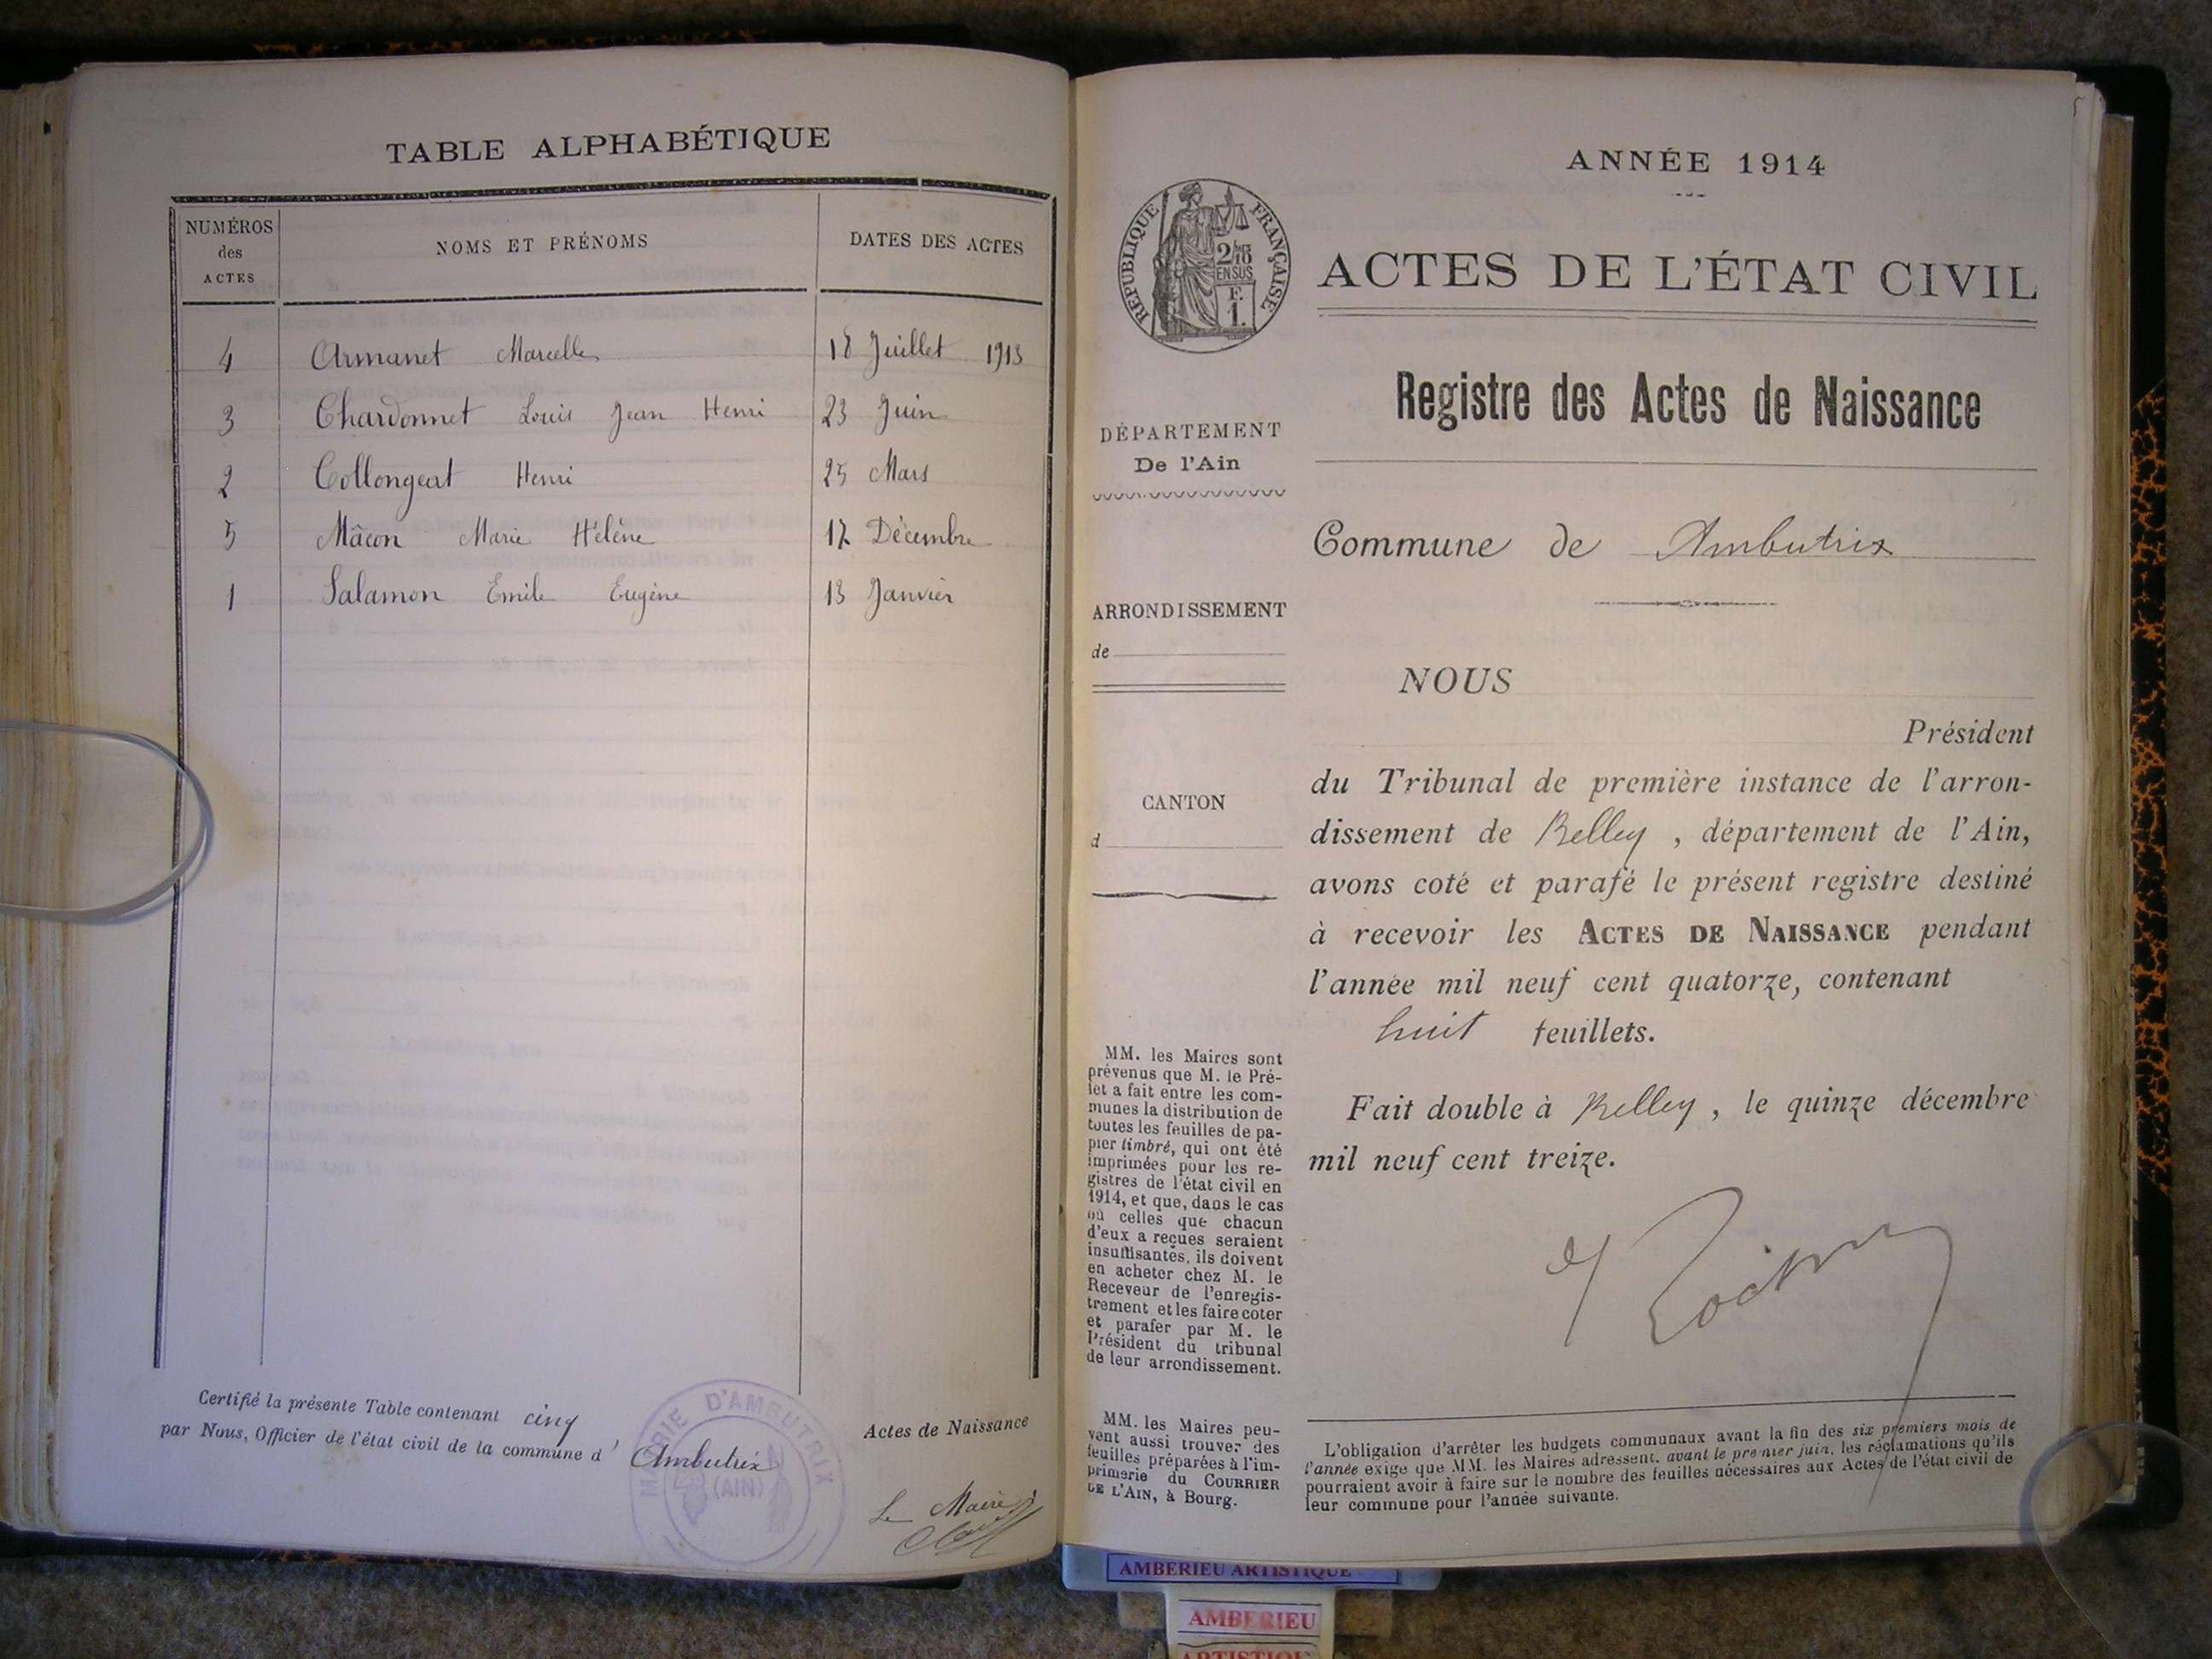 TABLE ALPHABÉTIQUE
NUMÉROS des ACTES NOMS ET PRÉNOMS DATES DES ACTES
4 Armanet Marcelle 18 Juillet 1913
3 Chardonnet Louis Jean Henri 23 Juin
2 Collongeat Henri 25 Mars
5 Mâcon Marie Hélène 17 Décembre
1 Salamon Emile Eugène 13 Janvier
Certifié la présente Table contenant cinq Actes de Naissance
par Nous, Officier de l'état civil de la commune d' Ambutrix
MAIRIE D'AMBUTRIX
(AIN)
Le Maire
ANNÉE 1914
RÉPUBLIQUE FRANÇAISE
2/10
EN SUS
F.
1.
ACTES DE L'ÉTAT CIVIL
Registre des Actes de Naissance
DÉPARTEMENT
De l'Ain
Commune de Ambutrix
ARRONDISSEMENT
de
CANTON
d
NOUS
Président
du Tribunal de première instance de l'arron-
dissement de Belley, département de l'Ain,
avons coté et parafé le présent registre destiné
à recevoir les ACTES DE NAISSANCE pendant
l'année mil neuf cent quatorze, contenant
huit feuillets.
Fait double à Belley, le quinze décembre
mil neuf cent treize.
MM. les Maires sont
prévenus que M. le Pré-
fet a fait entre les com-
munes la distribution de
toutes les feuilles de pa-
pier timbré, qui ont été
imprimées pour les re-
gistres de l'état civil en
1914, et que, dans le cas
où celles que chacun
d'eux a reçues seraient
insuffisantes, ils doivent
en acheter chez M. le
Receveur de l'enregis-
trement et les faire coter
et parafer par M. le
Président du tribunal
de leur arrondissement.
MM. les Maires peu-
vent aussi trouver des
feuilles préparées à l'im-
primerie du COURRIER
DE L'AIN, à Bourg.
L'obligation d'arrêter les budgets communaux avant la fin des six premiers mois de
l'année exige que MM. les Maires adressent, avant le premier juin, les réclamations qu'ils
pourraient avoir à faire sur le nombre des feuilles nécessaires aux Actes de l'état civil de
leur commune pour l'année suivante.
AMBERIEU ARTISTIQUE
AMBERIEU
ARTISTIQUE